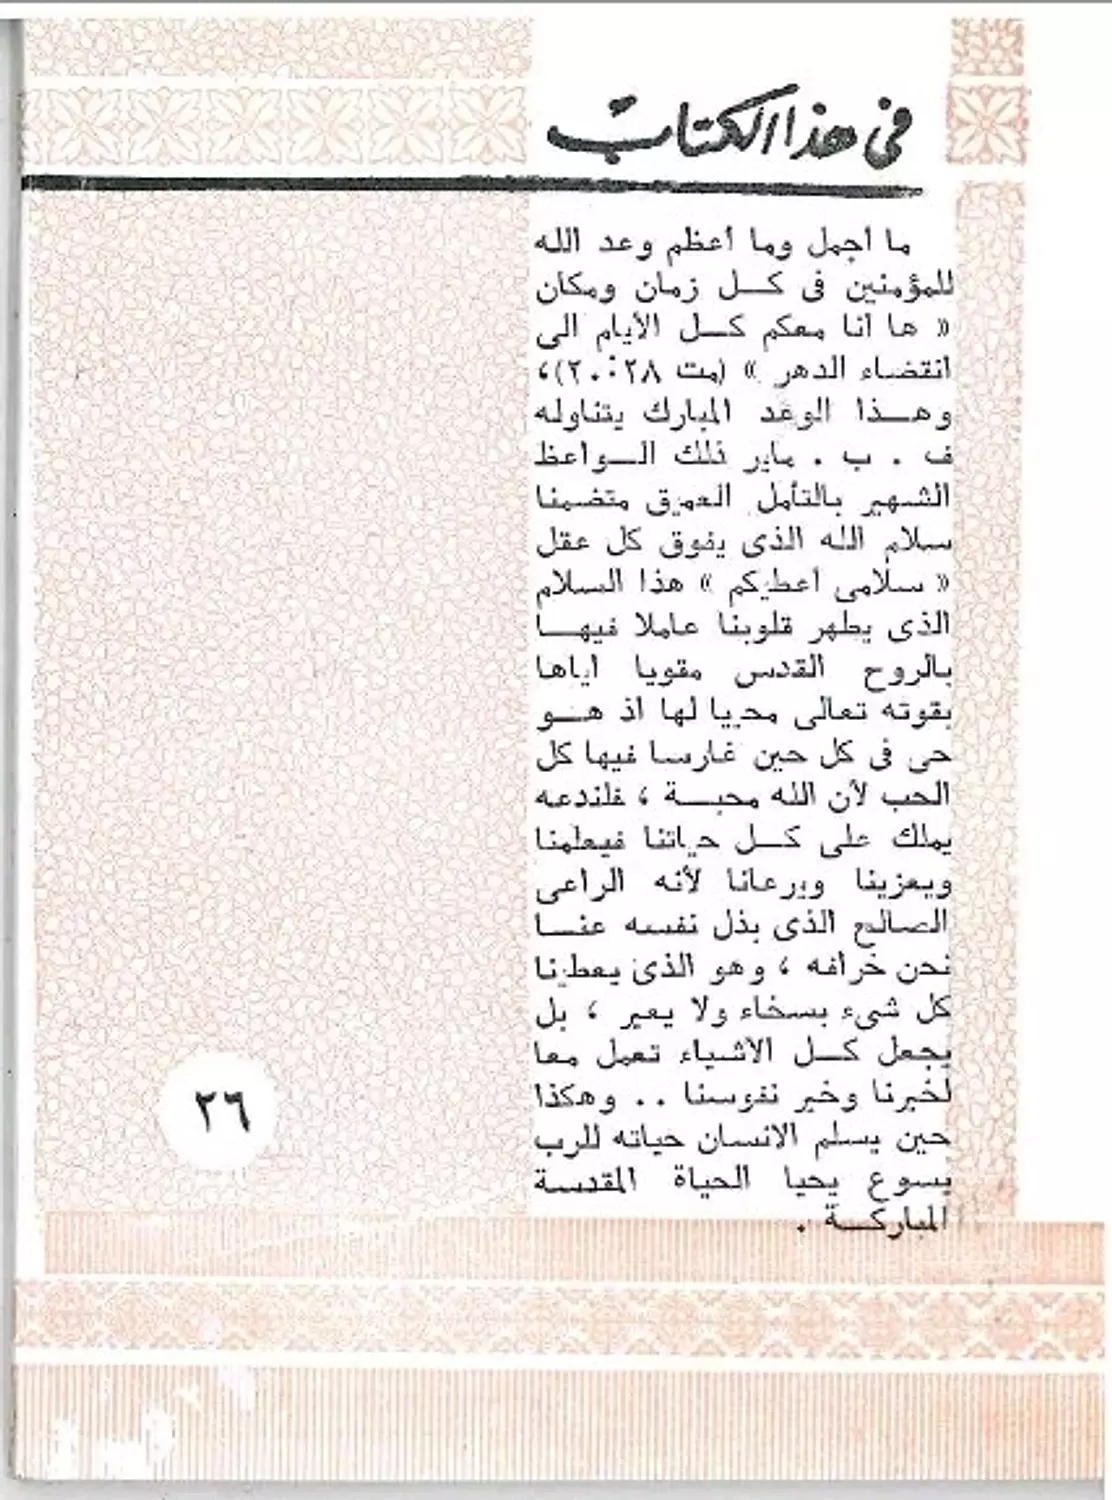 في هذا الكتاب
ما أجمل وما أعظم وعد الله
للمؤمنين فى كـــل زمان ومكان
« ها أنا معكم كـــل الأيام الى
انقضاء الدهر » (مت ٢٨:٢٠)،
وهـــذا الوعد المبارك يتناوله
ف . ب . ماير ذلك الـــواعظ
الشهير بالتأمل العميق متضمنا
سلام الله الذى يفوق كل عقل
« سلامى أعطيكم » هذا السلام
الذى يطهر قلوبنا عاملا فيهـــا
بالروح القدس مقويا اياها
بقوته تعالى محييا لها اذ هـــو
حى فى كل حين غارسا فيها كل
الحب لأن الله محبـــة ، فلندعه
يملك على كـــل حياتنا فيعلمنا
ويعزينا ويرعانا لأنه الراعى
الصالح الذى بذل نفسه عنـــا
نحن خرافه ، وهو الذى يعطينا
كل شىء بسخاء ولا يعير ، بل
يجعل كـــل الأشياء تعمل معا
لخيرنا وخير نفوسنا .. وهكذا
حين يسلم الانسان حياته للرب
يسوع يحيا الحياة المقدسة
المباركـــة .
٢٦